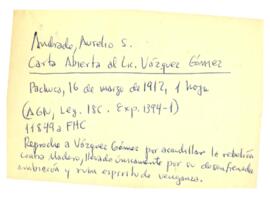 Andrade, Aurelio S.
Carta Abierta al Lic. Vázquez Gómez
Pachuca, 16 de marzo de 1912, 1 hoja
(AGN, Leg. 18C. Exp. 1394-1)
11849a FHC
Reprocha a Vázquez Gómez por acaudillar la rebelión
contra Madero, llevado únicamente por su desenfrenada
ambición y ruin espíritu de venganza.